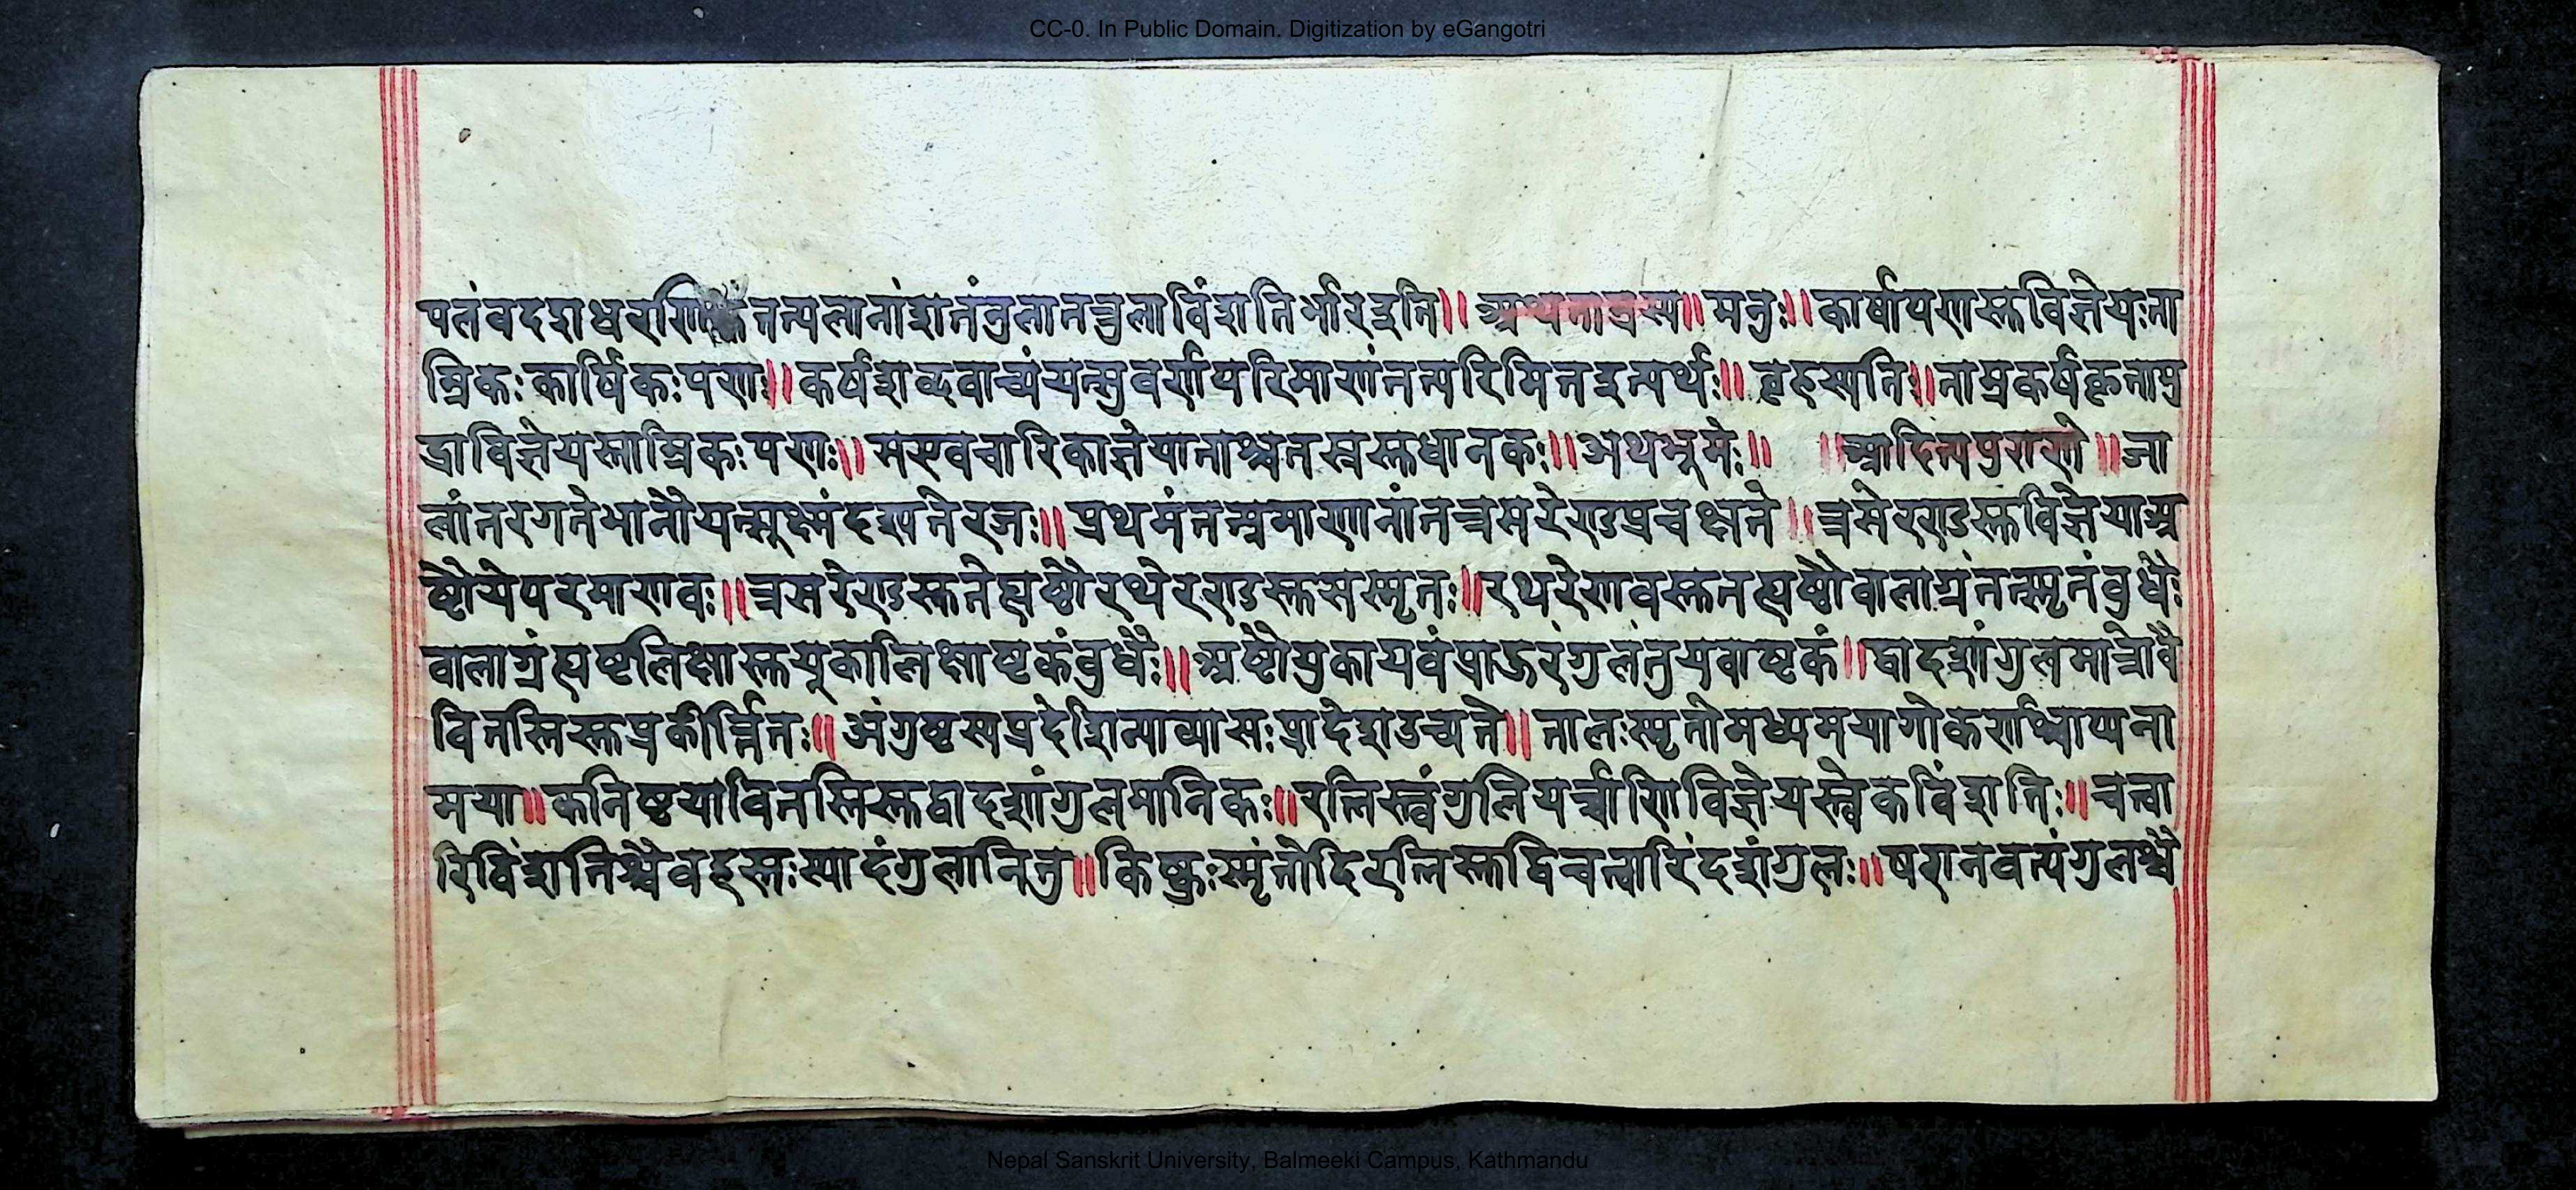 CC-0. In Public Domain. Digitization by eGangotri
पलं च दश धरणि तत्पलानां शतं तुला नत्तुला विंशति र्भार इति॥ अथ ताम्रस्य॥ मनुः॥ कार्षापणस्तु विज्ञेयः ता
म्रिकः कार्षिकः पणः॥ कर्षशब्दवाच्यं यत्सुवर्णपरिमाणं तत्परिमितइत्यर्थः॥ बृहस्पति॥ ताम्रकर्षकृतामु
द्रा विज्ञेयस्ताम्रिकः पणः॥ सएवचारिका ज्ञेया ताश्चतस्रस्तु धानकः॥ अथ भूमेः॥ ॥ आदित्यपुराणे॥ जा
लांतरगते भानौ यत्सूक्ष्मं दृश्यते रजः॥ प्रथमं तत्प्रमाणानां तत्त्रसरेणु प्रचक्षते॥ त्रसेरणुस्तु विज्ञेया अ
ष्टौ ये परमाणवः॥ त्रसरेणुस्तु ते ह्यष्टौ रथेरणुस्तु स स्मृतः॥ रथरेणवस्तु त ह्यष्टौ वालाग्रं तत्स्मृतं बुधैः
वालाग्रं ह्यष्ट लिक्षास्तु यूका लिक्षाष्टकं बुधैः॥ अष्टौ युका यवं प्राऊरंगुलं तु यवाष्टकं॥ द्वादशांगुलमात्रो वै
वितस्तिस्तु प्रकीर्त्तितः॥ अंगुष्टस्य प्रदेशिन्या व्यासः प्रादेश उच्यते॥ तालः स्मृतो मध्यमया गोकर्णश्चाप्यना
मया॥ कनिष्टया वितस्तिस्तु द्वादशांगुलमानिकः॥ रत्निस्त्वंगुलिपर्व्वाणि विज्ञेयस्त्वेकविंशतिः॥ चत्वा
रि विंशतिश्चैव हस्तः स्यादंगुलानि तु॥ किष्कुः स्मृंतो द्विरत्निस्तु द्विचत्वारिंदशांगुलः॥ षणनवत्यंगुलश्चै
Nepal Sanskrit University, Balmeeki Campus, Kathmandu